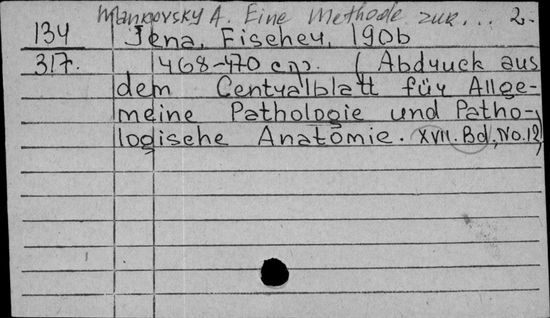 Mankovsky A. Eine Methode zur... 2.
134 Jena, Fischer, 1906
317. 468-470 стр. (Abdruck aus
dem Centralblatt für Allge-
meine Pathologie und Patho-
logische Anatomie. XVII. Bd, No. 12)